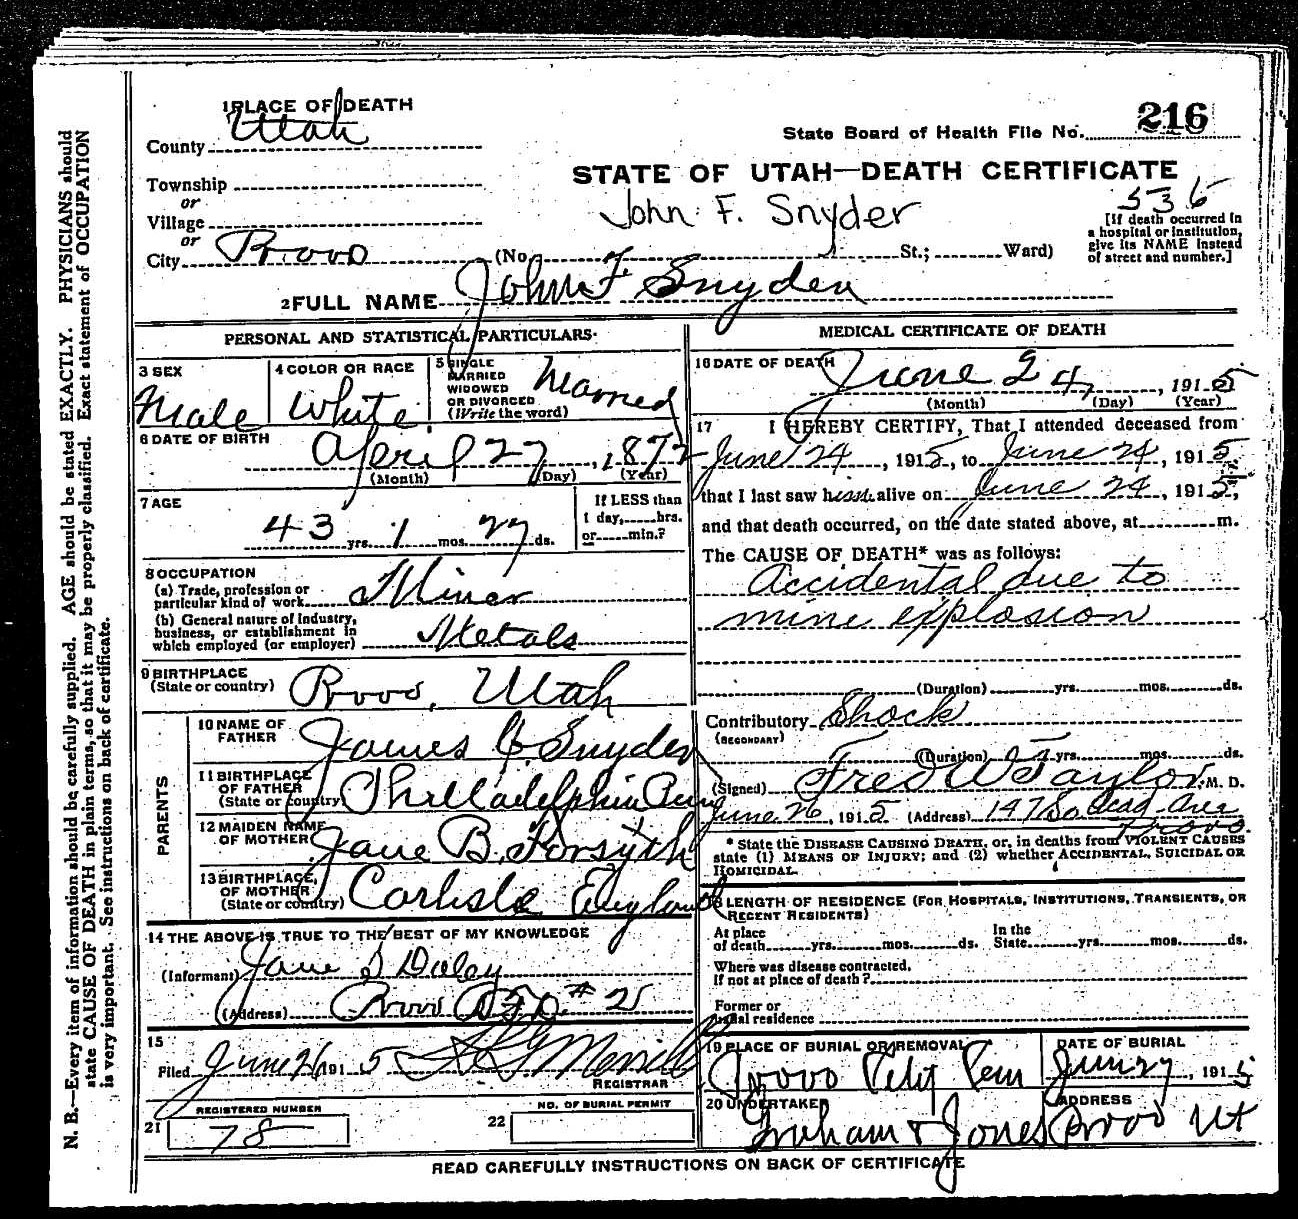 N. B.—Every item of information should be carefully supplied. AGE should be stated EXACTLY. PHYSICIANS should
state CAUSE OF DEATH in plain terms, so that it may be properly classified. Exact statement of OCCUPATION
is very important. See instructions on back of certificate.
1 PLACE OF DEATH
County Utah
Township
or
Village
or
City Provo
State Board of Health File No. 216
STATE OF UTAH—DEATH CERTIFICATE
John F. Snyder
536
[If death occurred in
a hospital or institution,
give its NAME instead
of street and number.]
(No. St.; Ward)
2 FULL NAME John F Snyder
PERSONAL AND STATISTICAL PARTICULARS
3 SEX
Male
4 COLOR OR RACE
White
5 SINGLE
MARRIED
WIDOWED
OR DIVORCED
(Write the word)
Married
6 DATE OF BIRTH
April 27, 1872
(Month) (Day) (Year)
7 AGE
43 yrs. 1 mos. 27 ds.
If LESS than
1 day, hrs.
or min.?
8 OCCUPATION
(a) Trade, profession or
particular kind of work Miner
(b) General nature of Industry,
business, or establishment in
which employed (or employer) Metals
9 BIRTHPLACE
(State or country) Provo, Utah
PARENTS
10 NAME OF
FATHER
James C. Snyder
11 BIRTHPLACE
OF FATHER
(State or country)
Philladelphia Penn
12 MAIDEN NAME
OF MOTHER
Jane B. Forsyth
13 BIRTHPLACE,
OF MOTHER
(State or country)
Carlisle England
14 THE ABOVE IS TRUE TO THE BEST OF MY KNOWLEDGE
(Informant) Jane S Daley
(Address) Provo R F D. # 2
15
Filed June 26 191 5 Merrill
REGISTRAR
REGISTERED NUMBER
21 78
NO. OF BURIAL PERMIT
22
MEDICAL CERTIFICATE OF DEATH
16 DATE OF DEATH
June 24, 1915
(Month) (Day) (Year)
17 I HEREBY CERTIFY, That I attended deceased from
June 24, 1915, to June 24, 1915
that I last saw him alive on June 24, 1915,
and that death occurred, on the date stated above, at m.
The CAUSE OF DEATH* was as follows:
Accidental due to
mine explosion
(Duration) yrs. mos. ds.
Contributory Shock
(SECONDARY)
(Duration) yrs. mos. ds.
(Signed) Fred W Taylor, M. D.
June 26, 1915 (Address) 147 So. Acad. Ave
Provo.
* State the DISEASE CAUSING DEATH, or, in deaths from VIOLENT CAUSES
state (1) MEANS OF INJURY; and (2) whether ACCIDENTAL, SUICIDAL OR
HOMICIDAL.
18 LENGTH OF RESIDENCE (FOR HOSPITALS, INSTITUTIONS, TRANSIENTS, OR
RECENT RESIDENTS)
At place
of death yrs. mos. ds.
In the
State yrs. mos. ds.
Where was disease contracted,
If not at place of death?
Former or
usual residence
19 PLACE OF BURIAL OR REMOVAL
Provo City Cem
DATE OF BURIAL
Jun 27, 1915
20 UNDERTAKER
Graham & Jones
ADDRESS
Provo Ut
READ CAREFULLY INSTRUCTIONS ON BACK OF CERTIFICATE